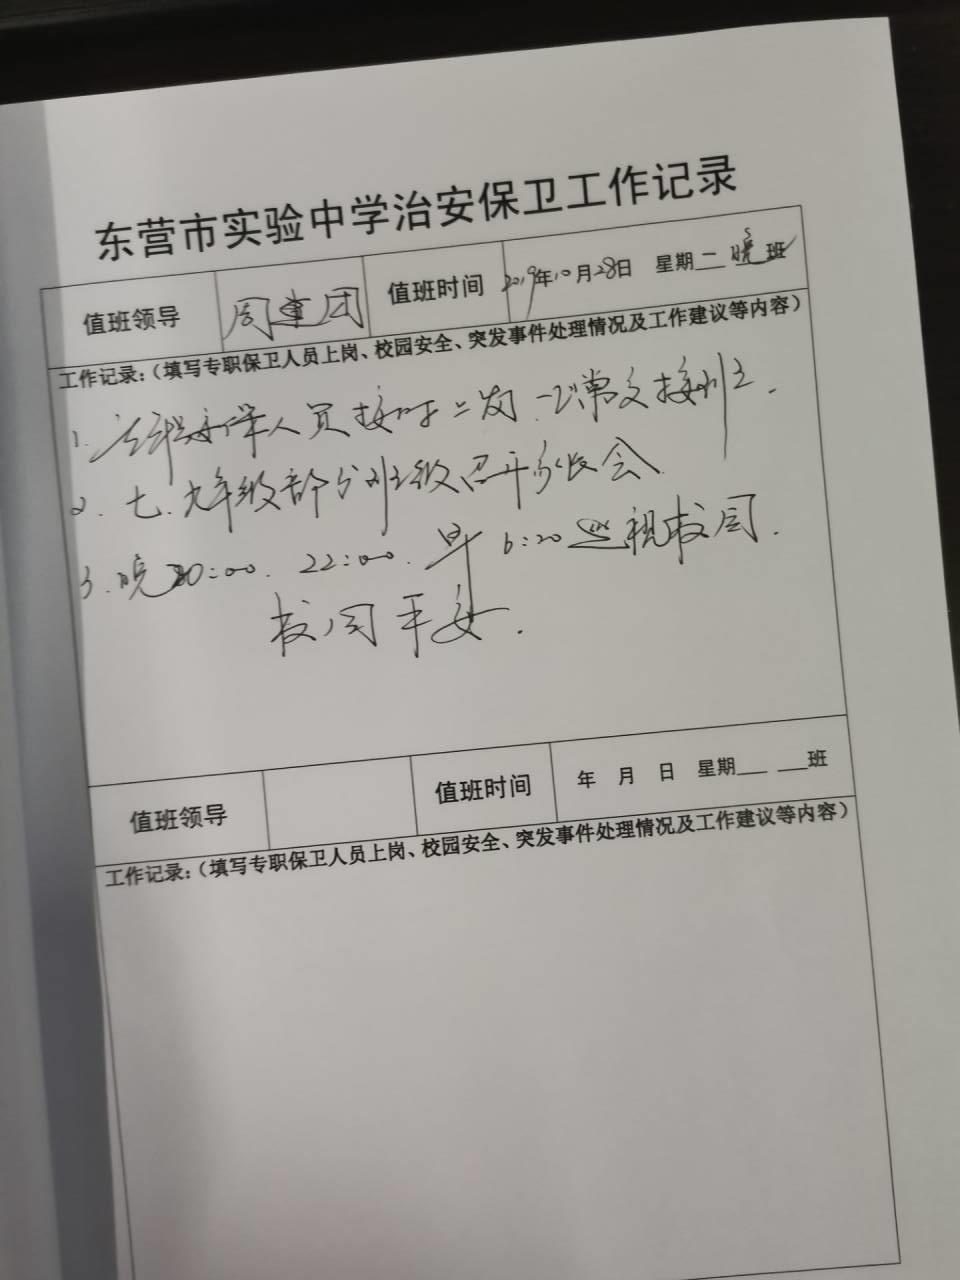 东营市实验中学治安保卫工作记录
值班领导 周 团 值班时间 2019年10月28日 星期二 晚班
工作记录：（填写专职保卫人员上岗、校园安全、突发事件处理情况及工作建议等内容）
1. 人员按时上岗，正常交接班.
2. 七.九年级部分班级召开家长会.
3. 晚20:00. 22:00. 早6:20巡视校园.
校园平安.
值班领导 值班时间 年 月 日 星期___ ___班
工作记录：（填写专职保卫人员上岗、校园安全、突发事件处理情况及工作建议等内容）